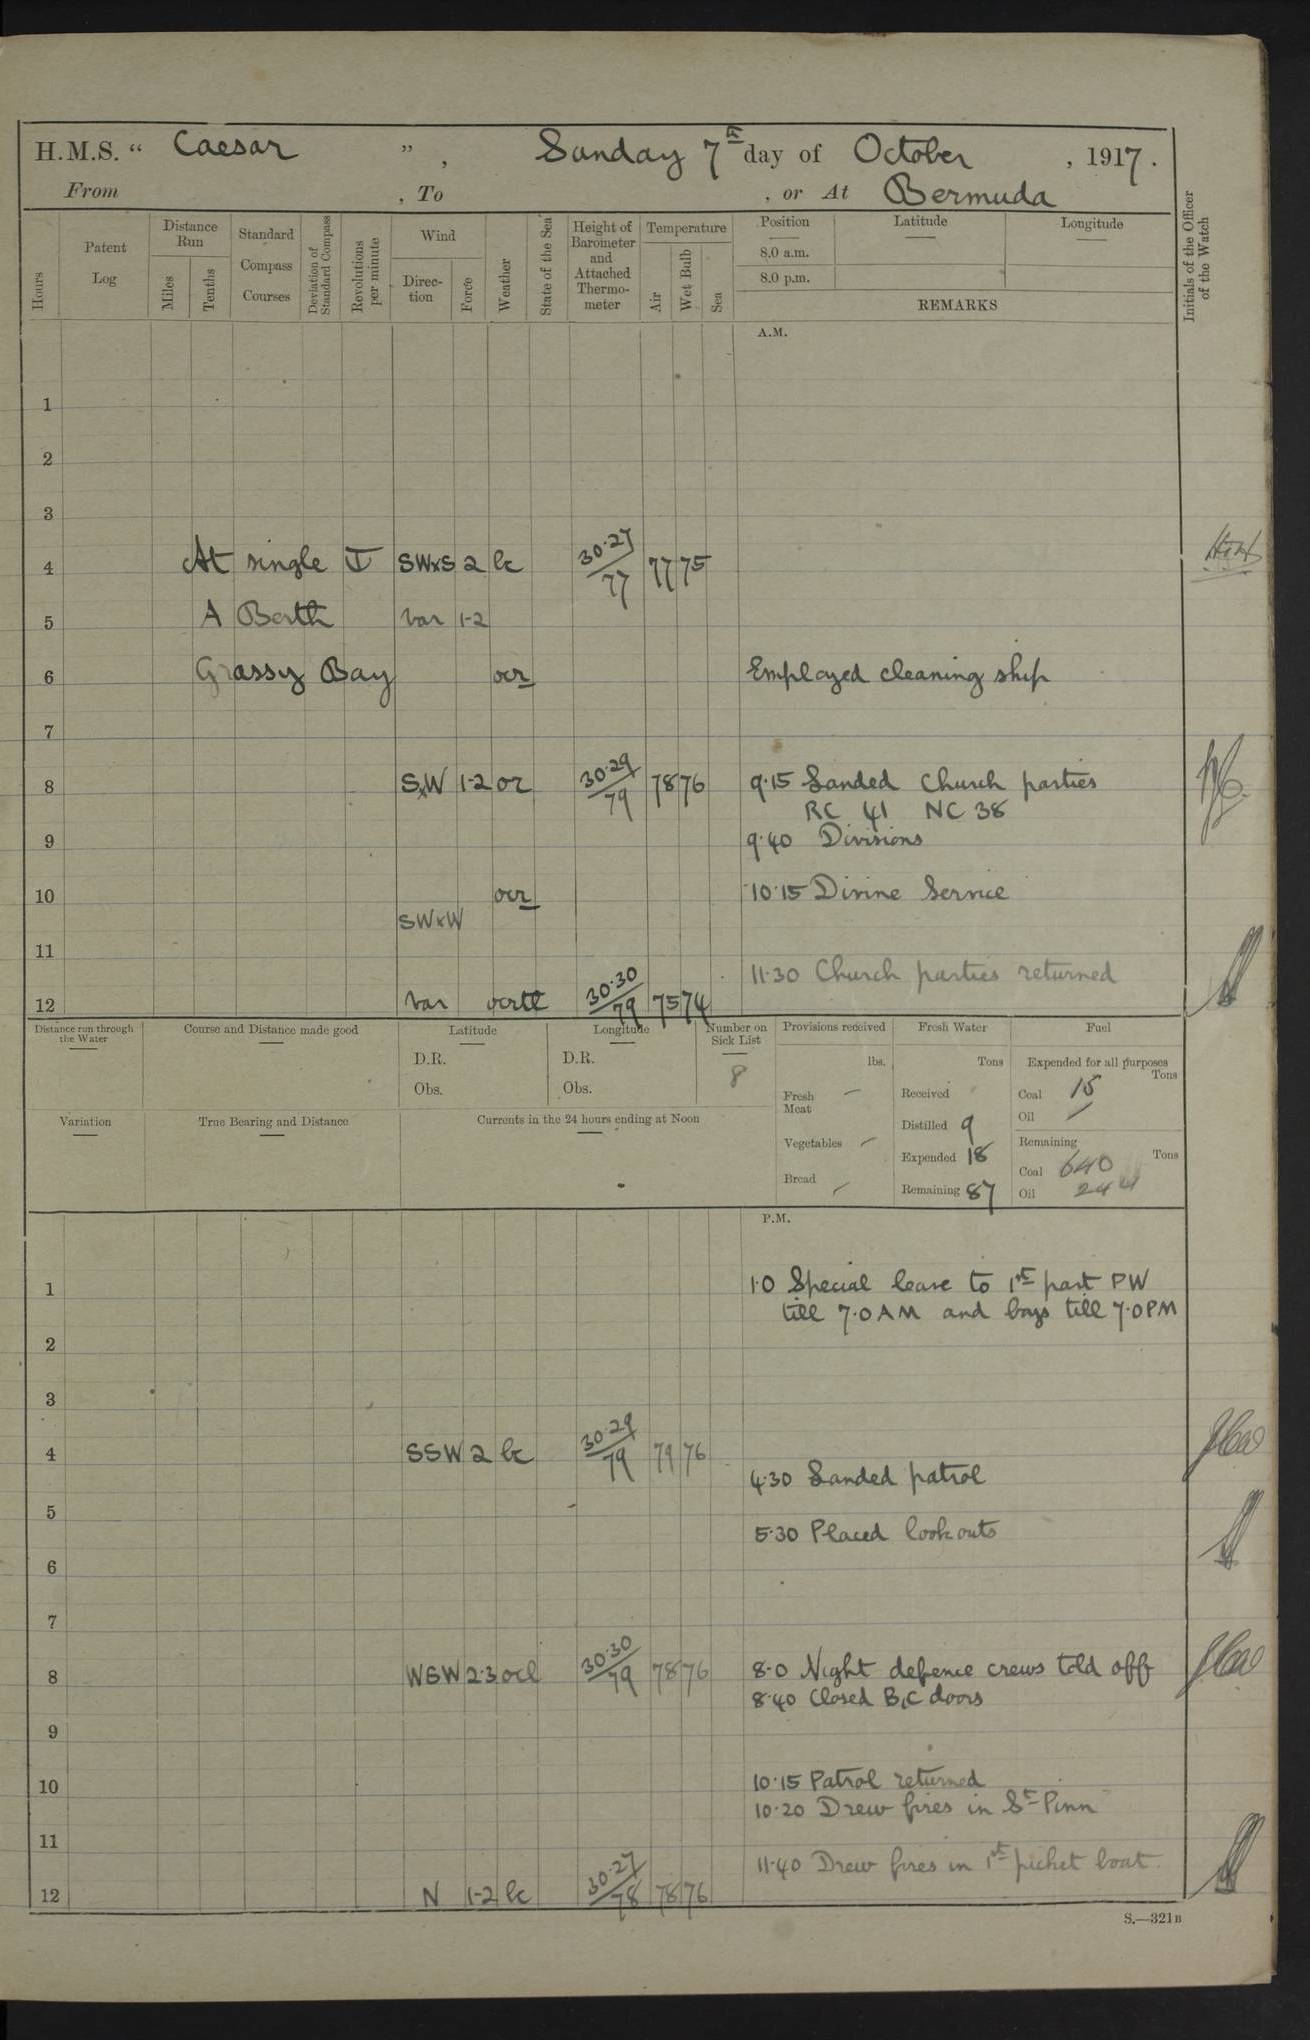 H.M.S. “ Caesar ” , Sunday 7th day of October , 1917 .
From , To , or At Bermuda
Hours
Patent Log
Distance Run
Miles
Tenths
Standard Compass Courses
Deviation of Standard Compass
Revolutions per minute
Wind
Direc-tion
Force
Weather
State of the Sea
Height of Barometer and Attached Thermo-meter
Temperature
Air
Wet Bulb
Sea
Position
8.0 a.m.
8.0 p.m.
Latitude
Longitude
REMARKS
Initials of the Officer of the Watch
A.M.
1
2
3
4 At single I SWxS 2 bc 30·27/77 77 75
5 A Berth var 1-2
6 Grassy Bay ocr Employed cleaning ship
7
8 SxW 1-2 or 30·29/79 78 76 9·15 Landed Church parties
RC 41 NC 38
9 9·40 Divisions
10 ocr 10·15 Divine Service
SWxW
11 11·30 Church parties returned
12 var ocrtl 30·30/79 75 74
Distance run through the Water
Course and Distance made good
Latitude
D.R.
Obs.
Longitude
D.R.
Obs.
Number on Sick List
8
Provisions received
lbs.
Fresh Meat –
Vegetables –
Bread –
Fresh Water
Tons
Received
Distilled 9
Expended 18
Remaining 87
Fuel
Expended for all purposes
Tons
Coal 15
Oil –
Remaining
Tons
Coal 640
Oil 244
Variation
True Bearing and Distance
Currents in the 24 hours ending at Noon
P.M.
1 1·0 Special leave to 1st part PW
till 7·0 AM and boys till 7·0 PM
2
3
4 SSW 2 bc 30·29/79 79 76
4·30 Landed patrol
5
5·30 Placed lookouts
6
7
8 WSW 2·3 ocl 30·30/79 78 76 8·0 Night defence crews told off
8·40 Closed B,C doors
9
10 10·15 Patrol returned
10·20 Drew fires in St Pinn
11
11·40 Drew fires in 1st picket boat
12 N 1-2 bc 30·27/78 78 76
S.—321B